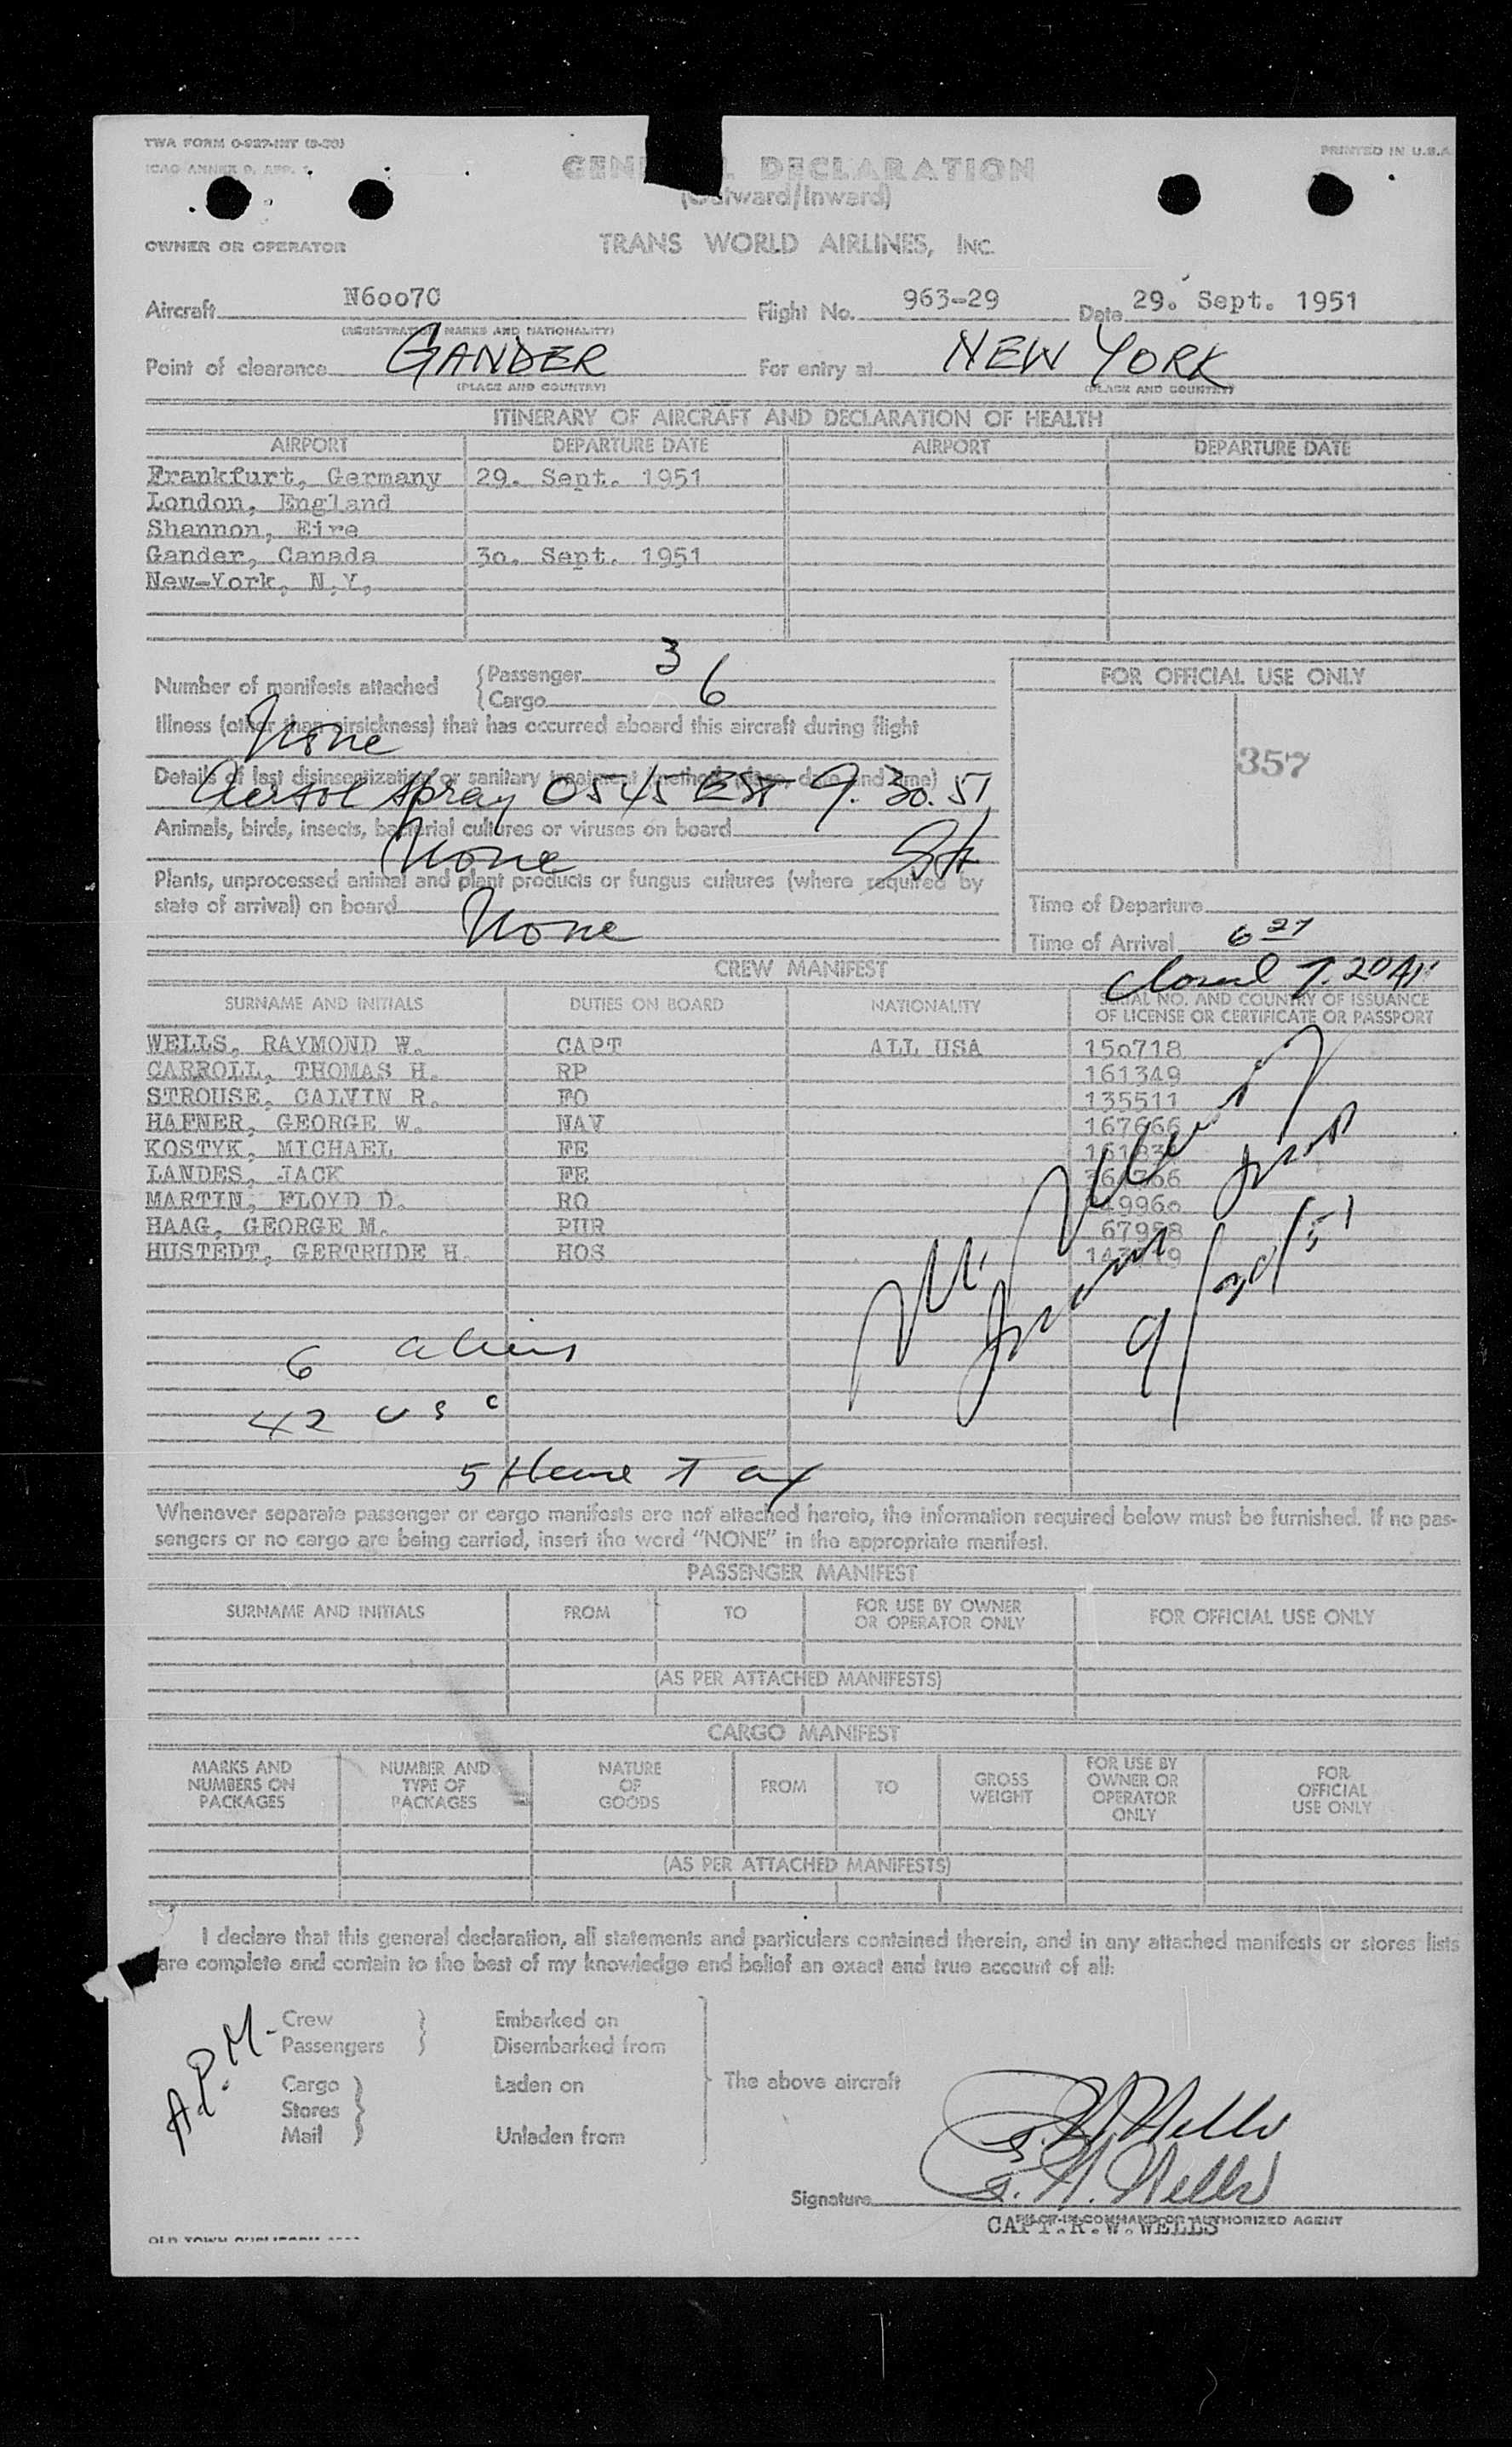 TWA FORM O-927-INT
ICAO ANNEX 9, APP. 1
PRINTED IN U.S.A.
DECLARATION
(Outward/Inward)
OWNER OR OPERATOR
TRANS WORLD AIRLINES, INC.
Aircraft N6007C Flight No. 963-29 Date 29. Sept. 1951
(REGISTRATION MARKS AND NATIONALITY)
Point of clearance GANDER For entry at NEW YORK
(PLACE AND COUNTRY) (PLACE AND COUNTRY)
ITINERARY OF AIRCRAFT AND DECLARATION OF HEALTH
AIRPORT DEPARTURE DATE AIRPORT DEPARTURE DATE
Frankfurt, Germany 29. Sept. 1951
London, England
Shannon, Eire
Gander, Canada 30. Sept. 1951
New-York, N,Y,
Number of manifests attached
Passenger 3
Cargo 6
FOR OFFICIAL USE ONLY
357
Illness (other than airsickness) that has occurred aboard this aircraft during flight
None
Details of last disinsectization or sanitary treatment (method, place, date and time)
Aersol spray 0545 EST 9.30.51
Animals, birds, insects, bacterial cultures or viruses on board
None
Plants, unprocessed animal and plant products or fungus cultures (where required by
state of arrival) on board
None
Time of Departure
Time of Arrival 6 27
Closed 7.20 AM
CREW MANIFEST
SURNAME AND INITIALS DUTIES ON BOARD NATIONALITY SERIAL NO. AND COUNTRY OF ISSUANCE
OF LICENSE OR CERTIFICATE OR PASSPORT
WELLS, RAYMOND W. CAPT ALL USA 150718
CARROLL, THOMAS H. RP 161349
STROUSE, CALVIN R. FO 135511
HAFNER, GEORGE W. NAV 167666
KOSTYK, MICHAEL FE
LANDES, JACK FE
MARTIN, FLOYD D. RO
HAAG, GEORGE M. PUR
HUSTEDT, GERTRUDE H. HOS
9/30/51
6 aliens
42 USC
5 Head Tax
Whenever separate passenger or cargo manifests are not attached hereto, the information required below must be furnished. If no pas-
sengers or no cargo are being carried, insert the word "NONE" in the appropriate manifest.
PASSENGER MANIFEST
SURNAME AND INITIALS FROM TO FOR USE BY OWNER
OR OPERATOR ONLY FOR OFFICIAL USE ONLY
(AS PER ATTACHED MANIFESTS)
CARGO MANIFEST
MARKS AND
NUMBERS ON
PACKAGES
NUMBER AND
TYPE OF
PACKAGES
NATURE
OF
GOODS
FROM
TO
GROSS
WEIGHT
FOR USE BY
OWNER OR
OPERATOR
ONLY
FOR
OFFICIAL
USE ONLY
(AS PER ATTACHED MANIFESTS)
I declare that this general declaration, all statements and particulars contained therein, and in any attached manifests or stores lists
are complete and contain to the best of my knowledge and belief an exact and true account of all:
A.P.M.
Crew
Passengers
Embarked on
Disembarked from
Cargo
Stores
Mail
Laden on
Unladen from
The above aircraft
R.W. Wells
R.W. Wells
Signature
PILOT-IN-COMMAND OR AUTHORIZED AGENT
CAPT.R.W.WELLS